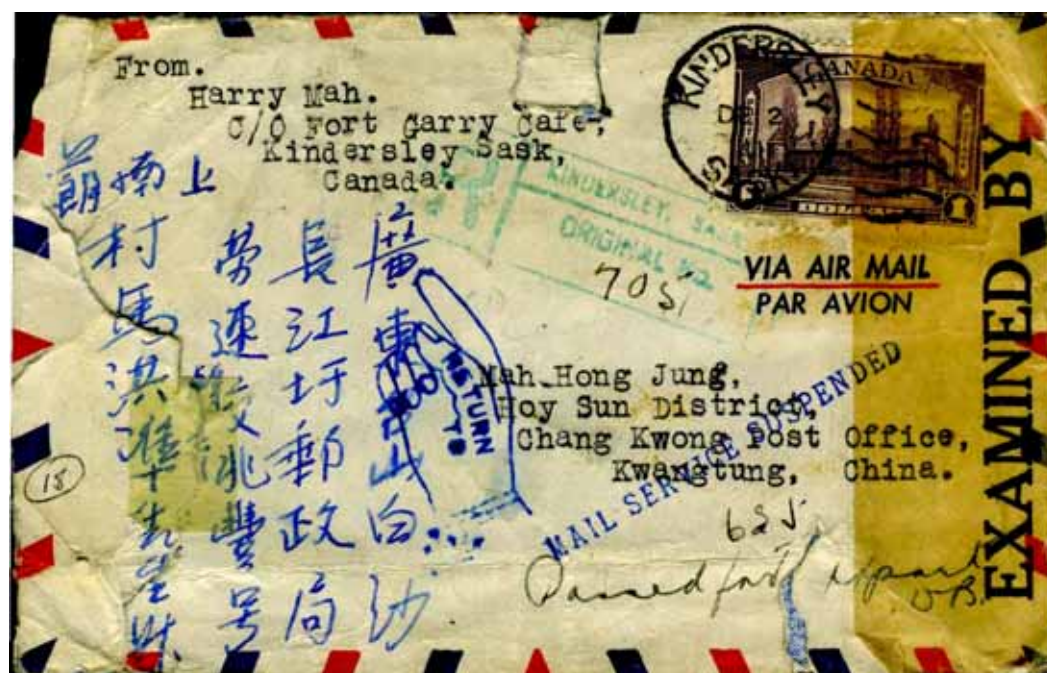 From.
Harry Mah.
C/O Fort Garry Cafe,
Kindersley Sask,
Canada.
KINDERSLEY
SASK
CANADA
DOLLAR
1
KINDERSLEY, SASK
ORIGINAL NO.
705
VIA AIR MAIL
PAR AVION
EXAMINED BY
RETURN
TO
Mah Hong Jung,
Hoy Sun District,
Chang Kwong Post Office,
Kwangtung, China.
MAIL SERVICE SUSPENDED
廣東台山白沙
長江圩郵政局
勞速交兆豐号
上南
村馬洪準
18
Passed for